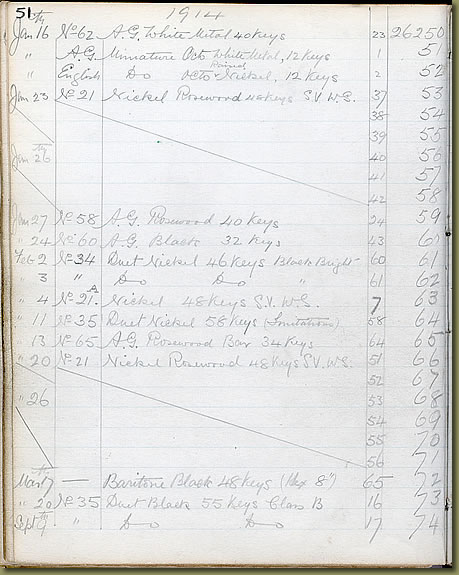 51 1914
Jan 16th No 62 A.G. White Metal 40 Keys 23 26250
" A.G. Miniature Octo White Metal, 12 Keys 1 51
" English Do Octo Nickel, 12 Keys 2 52
Jan 23 No 21 Nickel Rosewood 48 Keys S.V. W.S. 37 53
38 54
39 55
Jan 26th 40 56
41 57
42 58
Jan 27 No 58 A.G. Rosewood 40 Keys 24 59
" 24 No 60 A.G. Black 32 Keys 43 60
Feb 2 No 34 Duet Nickel 46 Keys Black Bright 60 61
3 " Do Do " 61 62
" 4 No 21A Nickel 48 Keys S.V. W.S. 7 63
" 11 No 35 Duet Nickel 58 Keys 58 64
" 13 No 65 A.G. Rosewood Bar 34 Keys 64 65
" 20 No 21 Nickel Rosewood 48 Keys S.V. W.S. 51 66
52 67
" 26 53 68
54 69
55 70
56 71
Mar 7th — Baritone Black 48 Keys (Hex 8") 65 72
" 20 No 35 Duet Black 55 Keys Class B 16 73
Sept 9th " Do Do 17 74